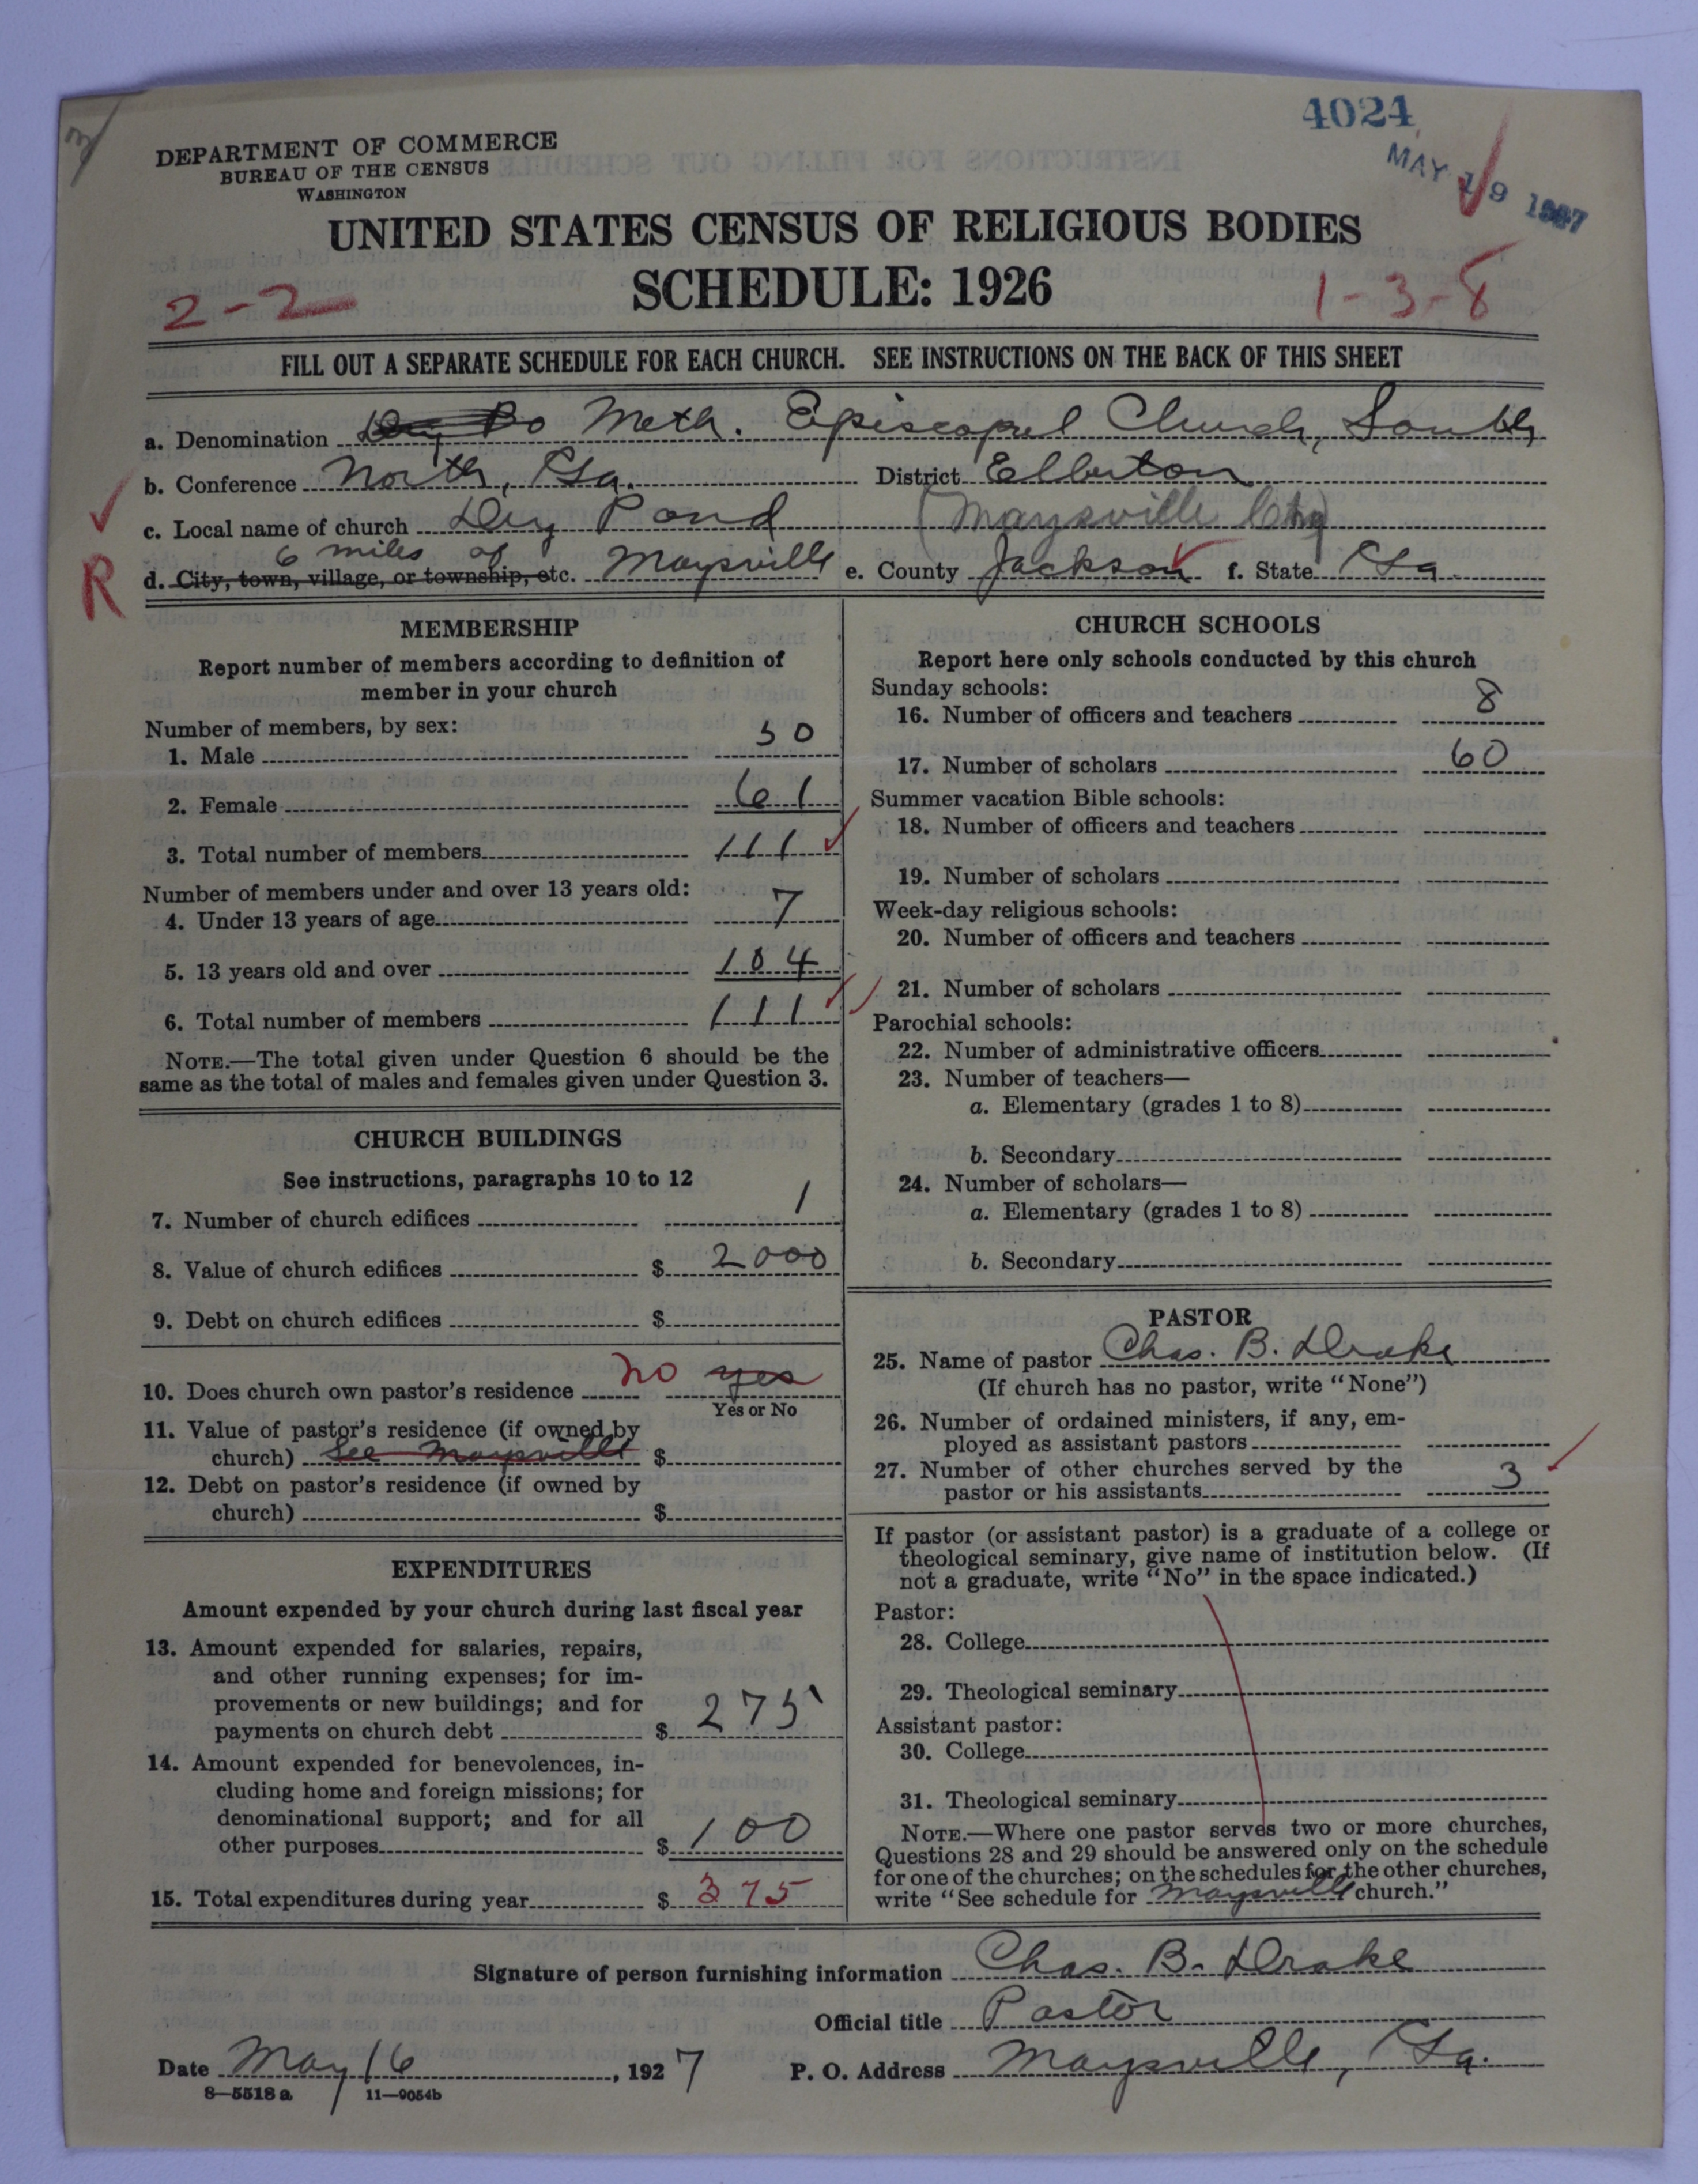 4024
MAY 19 1927
DEPARTMENT OF COMMERCE
BUREAU OF THE CENSUS
WASHINGTON
UNITED STATES CENSUS OF RELIGIOUS BODIES
SCHEDULE: 1926
2-2
1-3-8
FILL OUT A SEPARATE SCHEDULE FOR EACH CHURCH. SEE INSTRUCTIONS ON THE BACK OF THIS SHEET
a. Denomination Meth. Episcopal Church, South
b. Conference North, Ga. District Elberton
c. Local name of church Dry Pond (Maysville Chg)
6 miles of
R d. City, town, village, or township, etc. Maysville e. County Jackson f. State Ga.
MEMBERSHIP
Report number of members according to definition of
member in your church
Number of members, by sex:
1. Male 50
2. Female 61
3. Total number of members 111
Number of members under and over 13 years old:
4. Under 13 years of age 7
5. 13 years old and over 104
6. Total number of members 111
NOTE.—The total given under Question 6 should be the
same as the total of males and females given under Question 3.
CHURCH BUILDINGS
See instructions, paragraphs 10 to 12
7. Number of church edifices 1
8. Value of church edifices $ 2000
9. Debt on church edifices $
10. Does church own pastor's residence no yes
Yes or No
11. Value of pastor's residence (if owned by
church) See Maysville $
12. Debt on pastor's residence (if owned by
church) $
EXPENDITURES
Amount expended by your church during last fiscal year
13. Amount expended for salaries, repairs,
and other running expenses; for im-
provements or new buildings; and for
payments on church debt $ 275
14. Amount expended for benevolences, in-
cluding home and foreign missions; for
denominational support; and for all
other purposes $ 100
15. Total expenditures during year $ 375
CHURCH SCHOOLS
Report here only schools conducted by this church
Sunday schools:
16. Number of officers and teachers 8
17. Number of scholars 60
Summer vacation Bible schools:
18. Number of officers and teachers
19. Number of scholars
Week-day religious schools:
20. Number of officers and teachers
21. Number of scholars
Parochial schools:
22. Number of administrative officers
23. Number of teachers—
a. Elementary (grades 1 to 8)
b. Secondary
24. Number of scholars—
a. Elementary (grades 1 to 8)
b. Secondary
PASTOR
25. Name of pastor Chas. B. Drake
(If church has no pastor, write "None")
26. Number of ordained ministers, if any, em-
ployed as assistant pastors
27. Number of other churches served by the
pastor or his assistants 3
If pastor (or assistant pastor) is a graduate of a college or
theological seminary, give name of institution below. (If
not a graduate, write "No" in the space indicated.)
Pastor:
28. College
29. Theological seminary
Assistant pastor:
30. College
31. Theological seminary
NOTE.—Where one pastor serves two or more churches,
Questions 28 and 29 should be answered only on the schedule
for one of the churches; on the schedules for the other churches,
write "See schedule for Maysville church."
Signature of person furnishing information Chas. B. Drake
Official title Pastor
Date May 16, 1927 P. O. Address Maysville, Ga.
8—5518 a 11—9054b